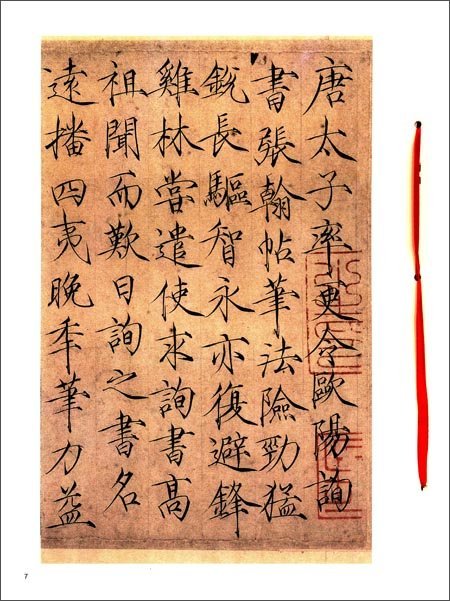 唐太子率更令歐陽詢
書張翰帖筆法險勁猛
銳長驅智永亦復避鋒
雞林嘗遣使求詢書高
祖聞而歎曰詢之書名
遠播四夷晚年筆力益
7